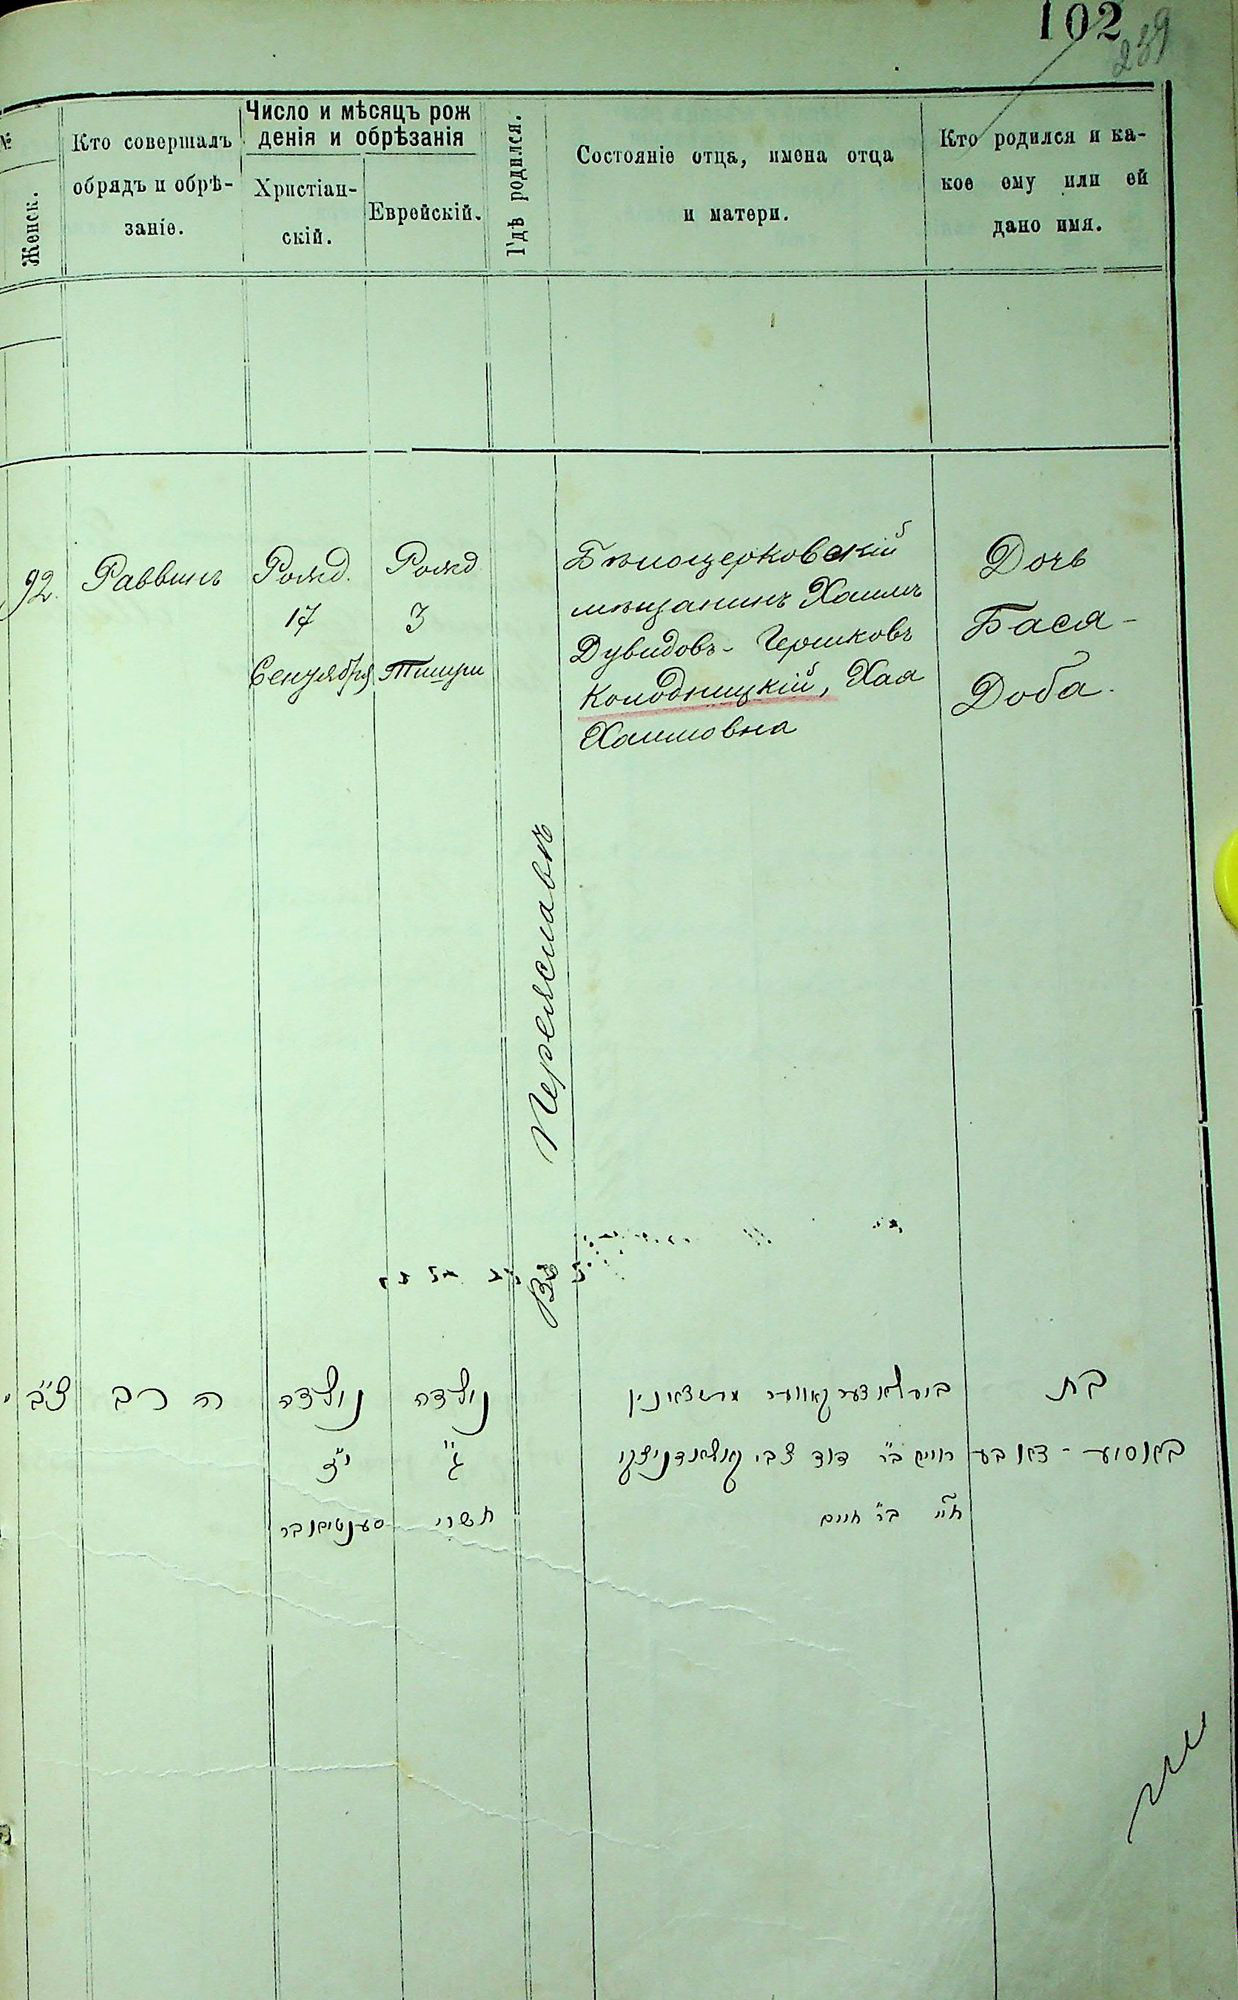 102
239
№
Женск.
Кто совершалъ
обрядъ и обрѣ-
заніе.
Число и мѣсяцъ рож
денія и обрѣзанія
Христіан-
скій.
Еврейскій.
Гдѣ родился.
Состояніе отца, имена отца
и матери.
Кто родился и ка-
кое ему или ей
дано имя.
92.
Раввинъ
Рожд.
17
Сентября
Рожд
3
Тишри
Въ Переяславѣ
Бѣлоцерковскій
мѣщанинъ Хаимъ
Дувидовъ-Гершковъ
Колодницкій, Хая
Хаимовна
Дочь
Бася-
Доба.
צ"ב
הרב
נולדה
י"ז
סענטיאבר
נולדה
ג"
תשרי
מעשצאנין
חיים ב"ר דוד צבי קולאדניצקי
חי' ב"ר חיים
בת
באסיע - דאבע